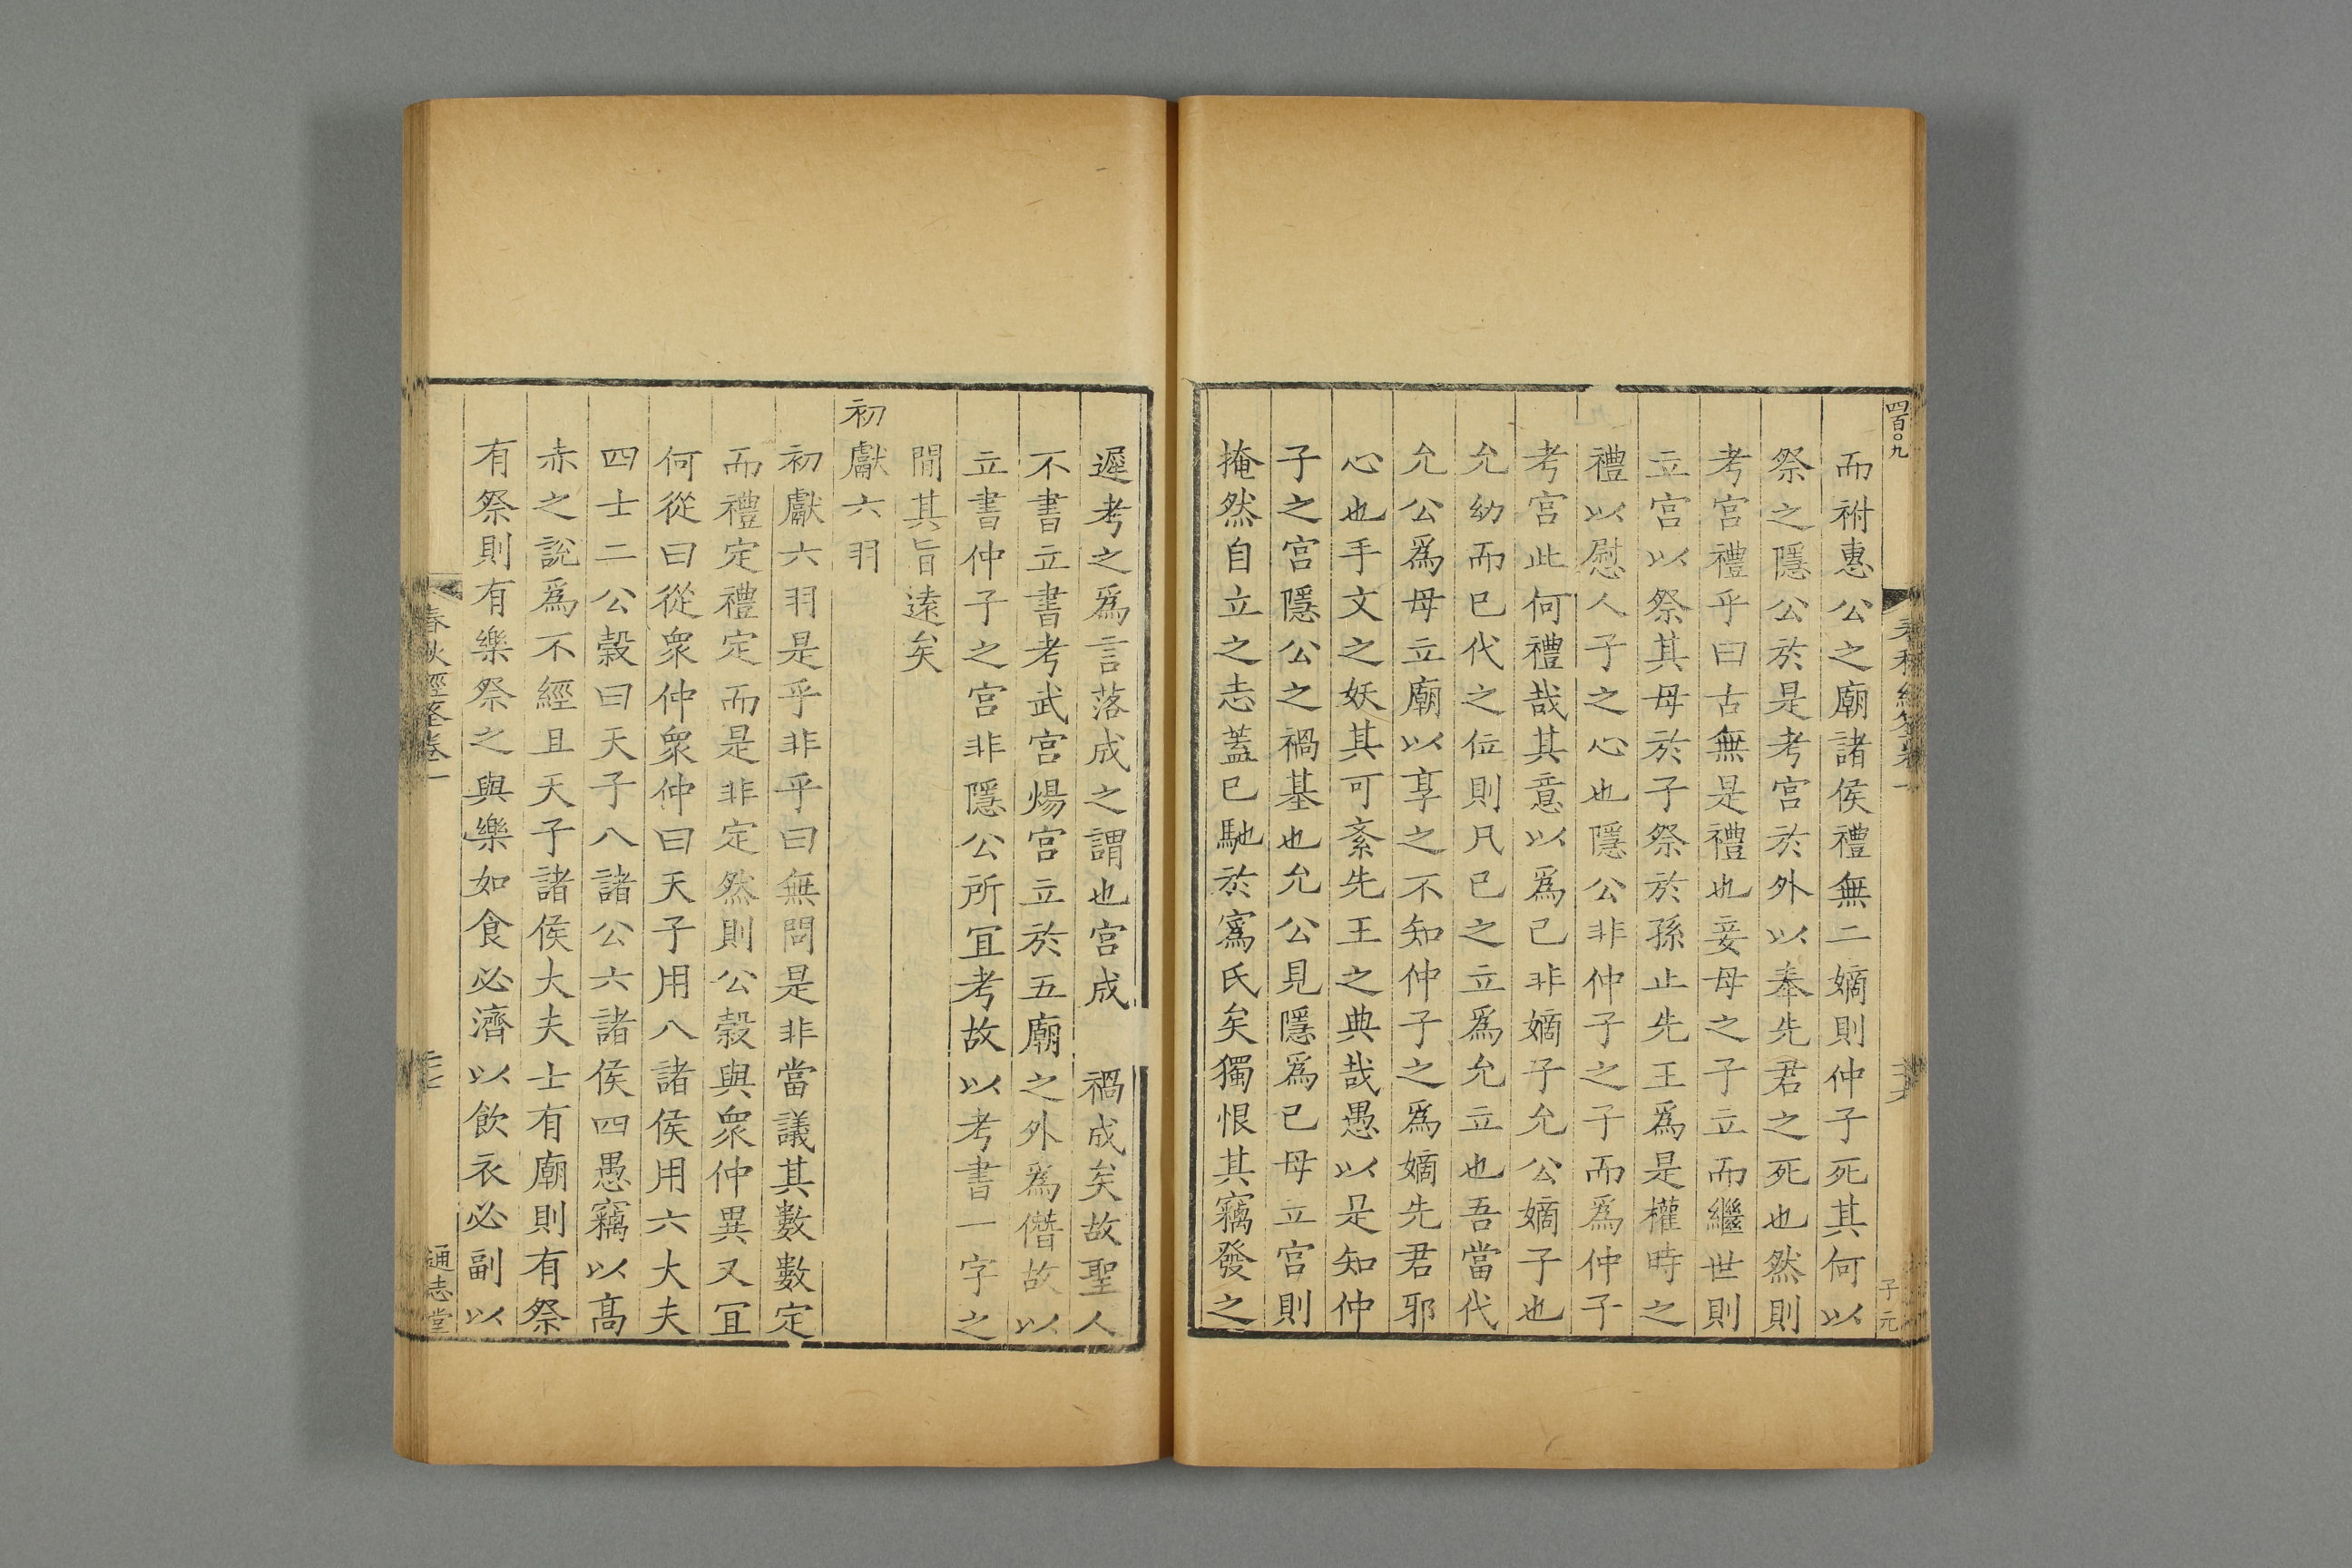 四百〇九
而祔惠公之廟諸侯禮無二嫡則仲子死其何以
祭之隱公於是考宮於外以奉先君之死也然則
考宮禮乎曰古無是禮也妾母之子立而繼世則
立宮以祭其母於子祭於孫止先王為是權時之
禮以慰人子之心也隱公非仲子之子而為仲子
考宮此何禮哉其意以為己非嫡子允公嫡子也
允幼而已代之位則凡已之立為允立也吾當代
允公爲母立廟以享之不知仲子之爲嫡先君邪
心也手文之妖其可紊先王之典哉愚以是知仲
子之宮隱公之禍基也允公見隱爲已母立宮則
掩然自立之志蓋已馳於寪氏矣獨恨其竊發之
子元
遲考之爲言落成之謂也宮成 禍成矣故聖人
不書立書考武宮煬宮立於五廟之外為僭故以
立書仲子之宮非隱公所宜考故以考書一字之
閒其旨遠矣
初獻六羽
初獻六羽是乎非乎曰無問是非當議其數數定
而禮定禮定而是非定然則公穀與眾仲異又宜
何從曰從眾仲眾仲曰天子用八諸侯用六大夫
四士二公穀曰天子八諸公六諸侯四愚竊以高
赤之說爲不經且天子諸侯大夫士有廟則有祭
有祭則有樂祭之與樂如食必濟以飲衣必副以
春秋經筌卷一
通志堂